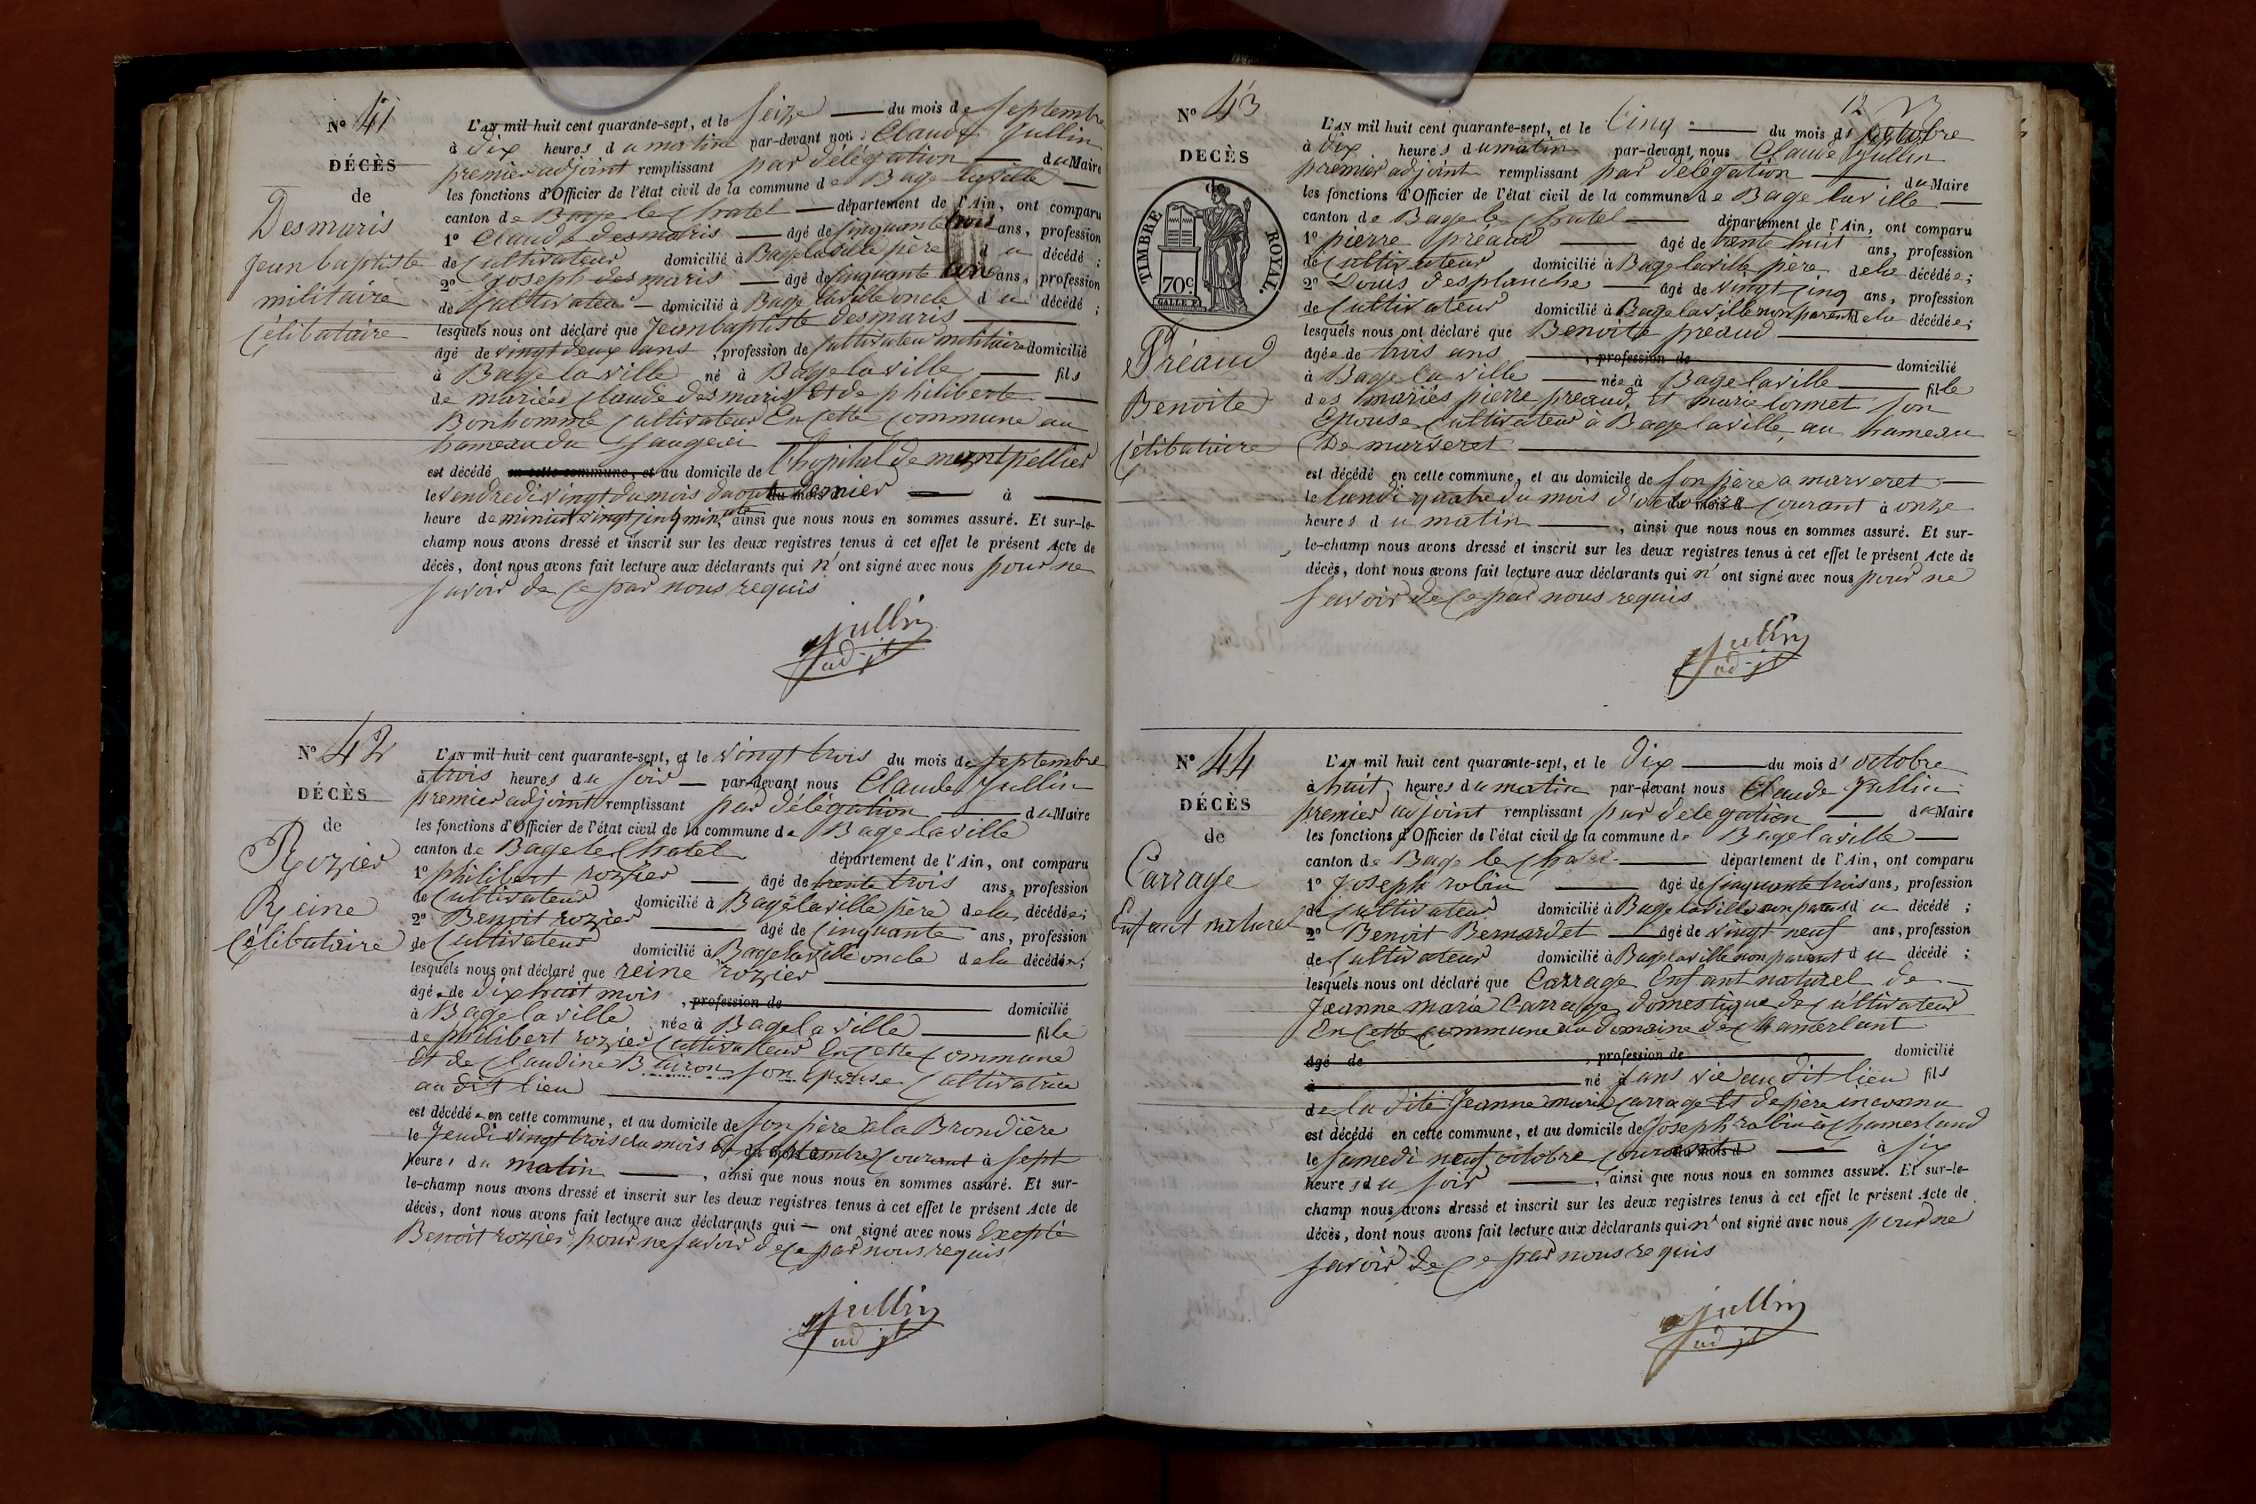 N° 41
DÉCÈS
de
Desmaris
Jean baptiste
militaire
Célibataire
L'AN mil huit cent quarante-sept, et le Seize du mois de septembre
à dix heures du matin par-devant nous Claude Jullin
premier adjoint remplissant par délégation du Maire
les fonctions d'Officier de l'état civil de la commune de Bage laville
canton de Bage le Chatel département de l'Ain, ont comparu
1° Claude desmaris âgé de cinquante trois ans, profession
de Cultivateur domicilié à Bagelaville père du décédé ;
2° Joseph desmaris âgé de cinquante ans, profession
de Cultivateur domicilié à Bage laville oncle du décédé ;
lesquels nous ont déclaré que Jean baptiste desmaris
âgé de vingt deux ans, profession de Cultivateur militaire domicilié
à Bage laville né à Bage laville fils
de mariés Claude desmaris Et de philiberte
Bonhomme Cultivateur En Cette Commune au
hameau du
est décédé en cette commune, et au domicile de l'hopital de montpellier
le vendredi vingt du mois daout dernier du mois d à
heure de minuit vingt cinq minute ainsi que nous nous en sommes assuré. Et sur-le-
champ nous avons dressé et inscrit sur les deux registres tenus à cet effet le présent Acte de
décès, dont nous avons fait lecture aux déclarants qui n'ont signé avec nous pour ne
savoir de Ce par nous requis
Jullin
adjt
N° 42
DÉCÈS
de
Rozier
Reine
Célibataire
L'AN mil huit cent quarante-sept, et le vingt trois du mois de septembre
à trois heures du soir par-devant nous Claude Jullin
premier adjoint remplissant par délégation du Maire
les fonctions d'Officier de l'état civil de la commune de Bage laville
canton de Bage le Chatel département de l'Ain, ont comparu
1° philibert rozier âgé de trente trois ans, profession
de Cultivateur domicilié à Bagelaville père de la décédée ;
2° Benoit rozier âgé de Cinquante ans, profession
de Cultivateur domicilié à Bagelaville oncle de la décédée ;
lesquels nous ont déclaré que reine rozier
âgée de dixhuit mois, profession de domicilié
à Bage laville née à Bage laville fille
de philibert rozier Cultivateur En Cette Commune
Et de Claudine Buiron son Epouse Cultivatrice
au dit lieu
est décédée en cette commune, et au domicile de son père à la Brondière
le Jeudi vingt trois du mois de septembre du mois d Courant à sept
heures du matin, ainsi que nous nous en sommes assuré. Et sur-
le-champ nous avons dressé et inscrit sur les deux registres tenus à cet effet le présent Acte de
décès, dont nous avons fait lecture aux déclarants qui ont signé avec nous Excepté
Benoit rozier pour ne savoir de Ce par nous requis
Jullin
adjt
12
N° 43
DÉCÈS
de
TIMBRE ROYAL.
70c
Préaud
Benoite
Célibataire
L'AN mil huit cent quarante-sept, et le Cinq du mois d'octobre
à dix heures du matin par-devant nous Claude Jullin
premier adjoint remplissant par délégation du Maire
les fonctions d'Officier de l'état civil de la commune de Bage laville
canton de Bage le Chatel département de l'Ain, ont comparu
1° pierre préaud âgé de trente huit ans, profession
de Cultivateur domicilié à Bagelaville père de la décédée ;
2° Louis desplanche âgé de vingt Cinq ans, profession
de Cultivateur domicilié à Bagelaville non parent de la décédée ;
lesquels nous ont déclaré que Benoite preaud
âgée de trois ans, profession de domicilié
à Bage la ville née à Bage laville fille
des mariés pierre preaud, Et marie Cormet son
Epouse Cultivateur à Bage laville au hameau
De marveret
est décédé en cette commune, et au domicile de son père a marveret
le lundi quatre du mois d'octobre du mois d Courant à onze
heures du matin, ainsi que nous nous en sommes assuré. Et sur-
le-champ nous avons dressé et inscrit sur les deux registres tenus à cet effet le présent Acte de
décès, dont nous avons fait lecture aux déclarants qui n'ont signé avec nous pour ne
savoir de Ce par nous requis
Jullin
adjt
N° 44
DÉCÈS
de
Carrage
Enfant naturel
L'AN mil huit cent quarante-sept, et le Dix du mois d'octobre
à huit heures du matin par-devant nous Claude Jullin
premier adjoint remplissant par délégation du Maire
les fonctions d'Officier de l'état civil de la commune de Bage laville
canton de Bage le Chatel département de l'Ain, ont comparu
1° Joseph robin âgé de Cinquante trois ans, profession
de Cultivateur domicilié à Bage laville non parent du décédé ;
2° Benoit Bernardet âgé de vingt neuf ans, profession
de Cultivateur domicilié à Bagelaville non parent du décédé ;
lesquels nous ont déclaré que Carrage Enfant naturel de
Jeanne marie Carrage domestique de Cultivateur
En Cette Commune au domaine de Chamerlant
âgé de , profession de domicilié
à né sans vie au dit lieu fils
de la dite Jeanne marie Carrage Et de père inconnu
est décédé en cette commune, et au domicile de Joseph robin à Chamerland
le samedi neuf octobre Courant du mois d à six
heures du soir, ainsi que nous nous en sommes assuré. Et sur-le-
champ nous avons dressé et inscrit sur les deux registres tenus à cet effet le présent Acte de
décès, dont nous avons fait lecture aux déclarants qui n'ont signé avec nous pour ne
savoir de Ce par nous requis
Jullin
adjt